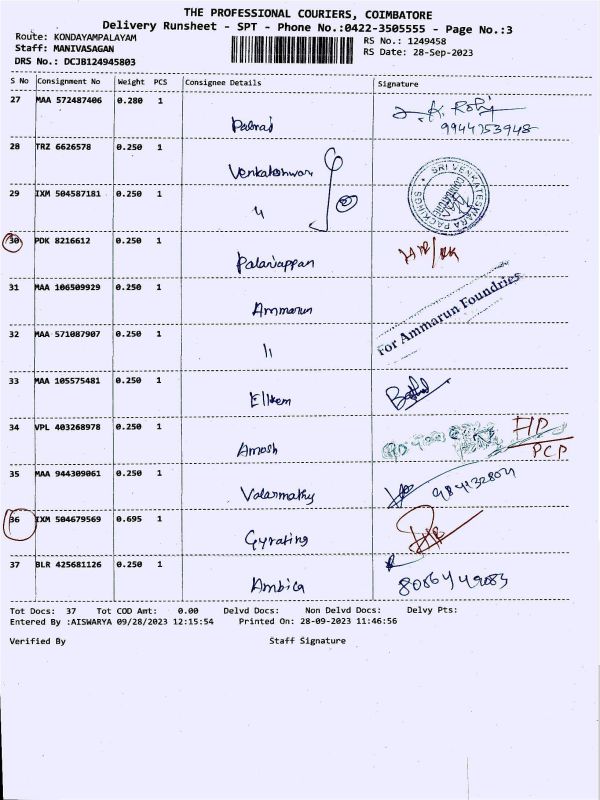 THE PROFESSIONAL COURIERS, COIMBATORE
Delivery Runsheet - SPT - Phone No.:0422-3505555 - Page No.:3
Route: KONDAYAMPALAYAM
RS No.: 1249458
Staff: MANIVASAGAN
RS Date: 28-Sep-2023
DRS No.: DCJB124945803
S No Consignment No Weight PCS Consignee Details Signature
27 MAA 572487406 0.280 1
9944253948
28 TRZ 6626578 0.250 1 Venkateshwara
29 IXM 504587181 0.250 1 "
SRI VENKATESWARA PACKINGS
COIMBATORE
30 PDK 8216612 0.250 1 Palaniappan
31 MAA 106509929 0.250 1 Ammarun
For Ammarun Foundries
32 MAA 571087907 0.250 1 11
33 MAA 105575481 0.250 1 Elkem
34 VPL 403268978 0.250 1 Amosh
PCP
35 MAA 944309061 0.250 1 Valarmathy
36 IXM 504679569 0.695 1 Gyrating
37 BLR 425681126 0.250 1 Ambica
Tot Docs: 37 Tot COD Amt: 0.00 Delvd Docs: Non Delvd Docs: Delvy Pts:
Entered By :AISWARYA 09/28/2023 12:15:54 Printed On: 28-09-2023 11:46:56
Verified By Staff Signature